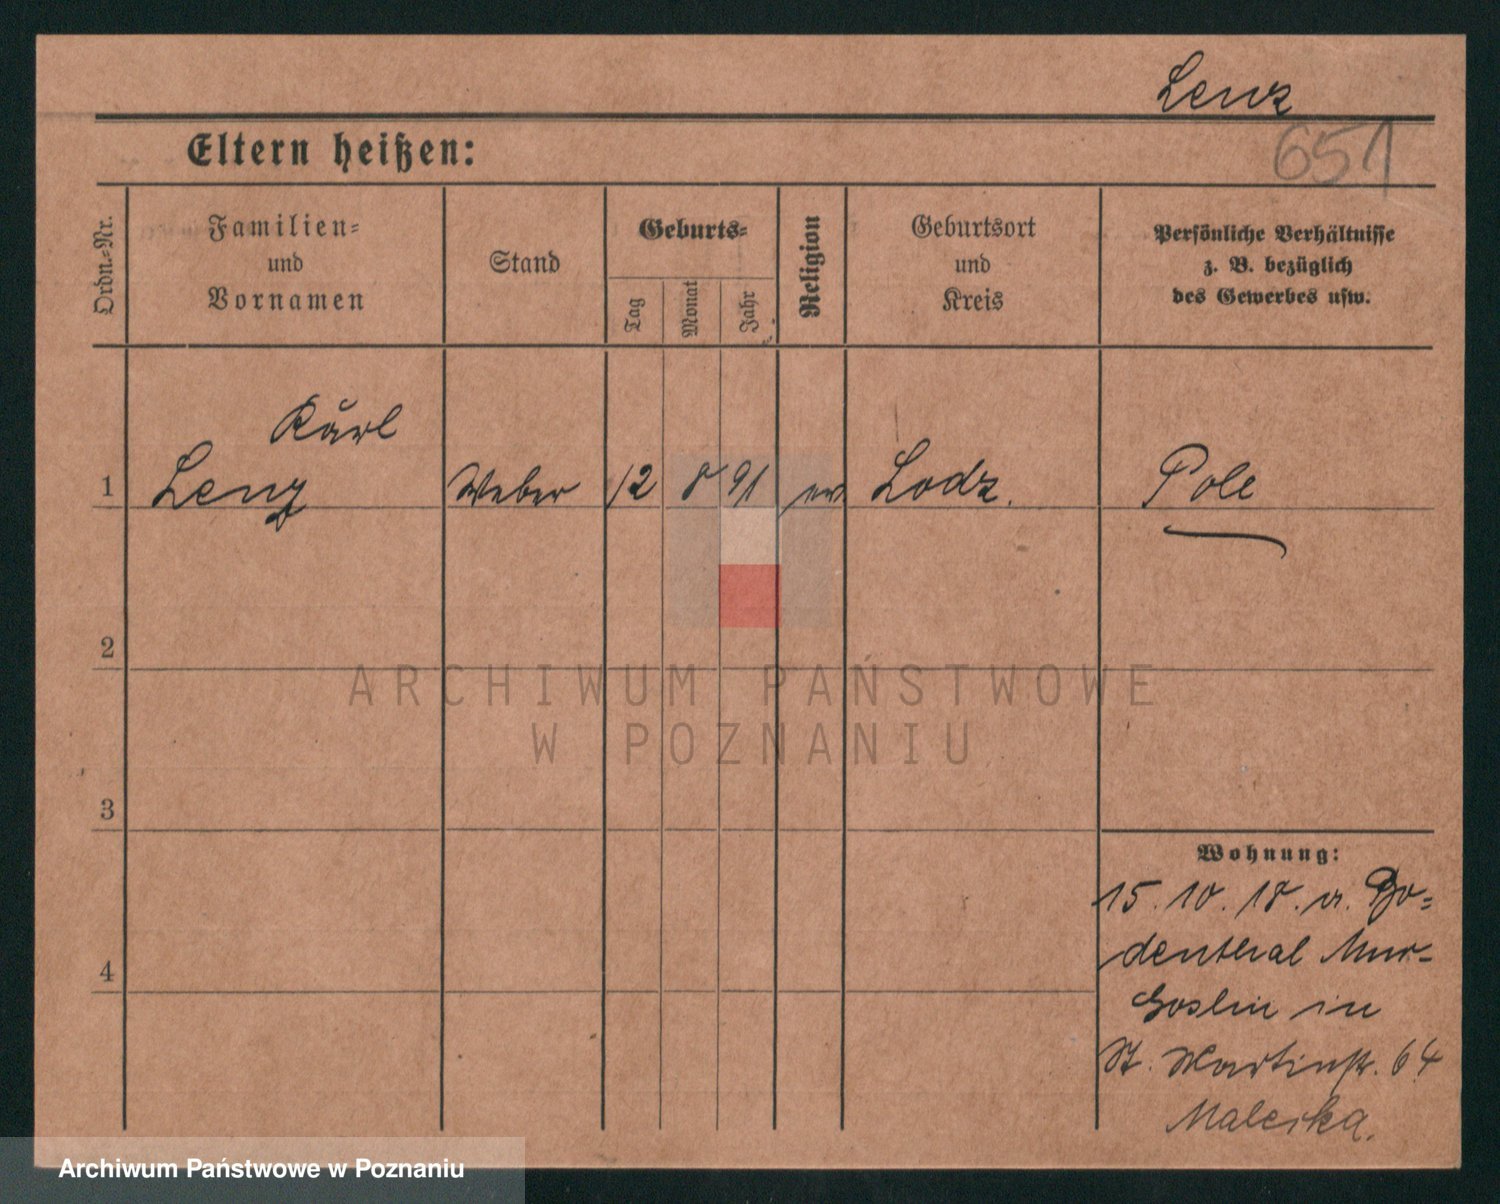 Lenz
651
Eltern heißen:
Ordn.-Nr.
Familien-
und
Vornamen
Stand
Geburts-
Tag
Monat
Jahr
Religion
Geburtsort
und
Kreis
Persönliche Verhältnisse
z. B. bezüglich
des Gewerbes usw.
Karl
1 Lenz Weber 12 8 91 ev Lodz. Pole
2
3
4
Wohnung:
15. 10. 18. a. Bo-
denthal Mur-
Goslin in
St. Martinstr. 64
Maleska.
ARCHIWUM PAŃSTWOWE
W POZNANIU
Archiwum Państwowe w Poznaniu